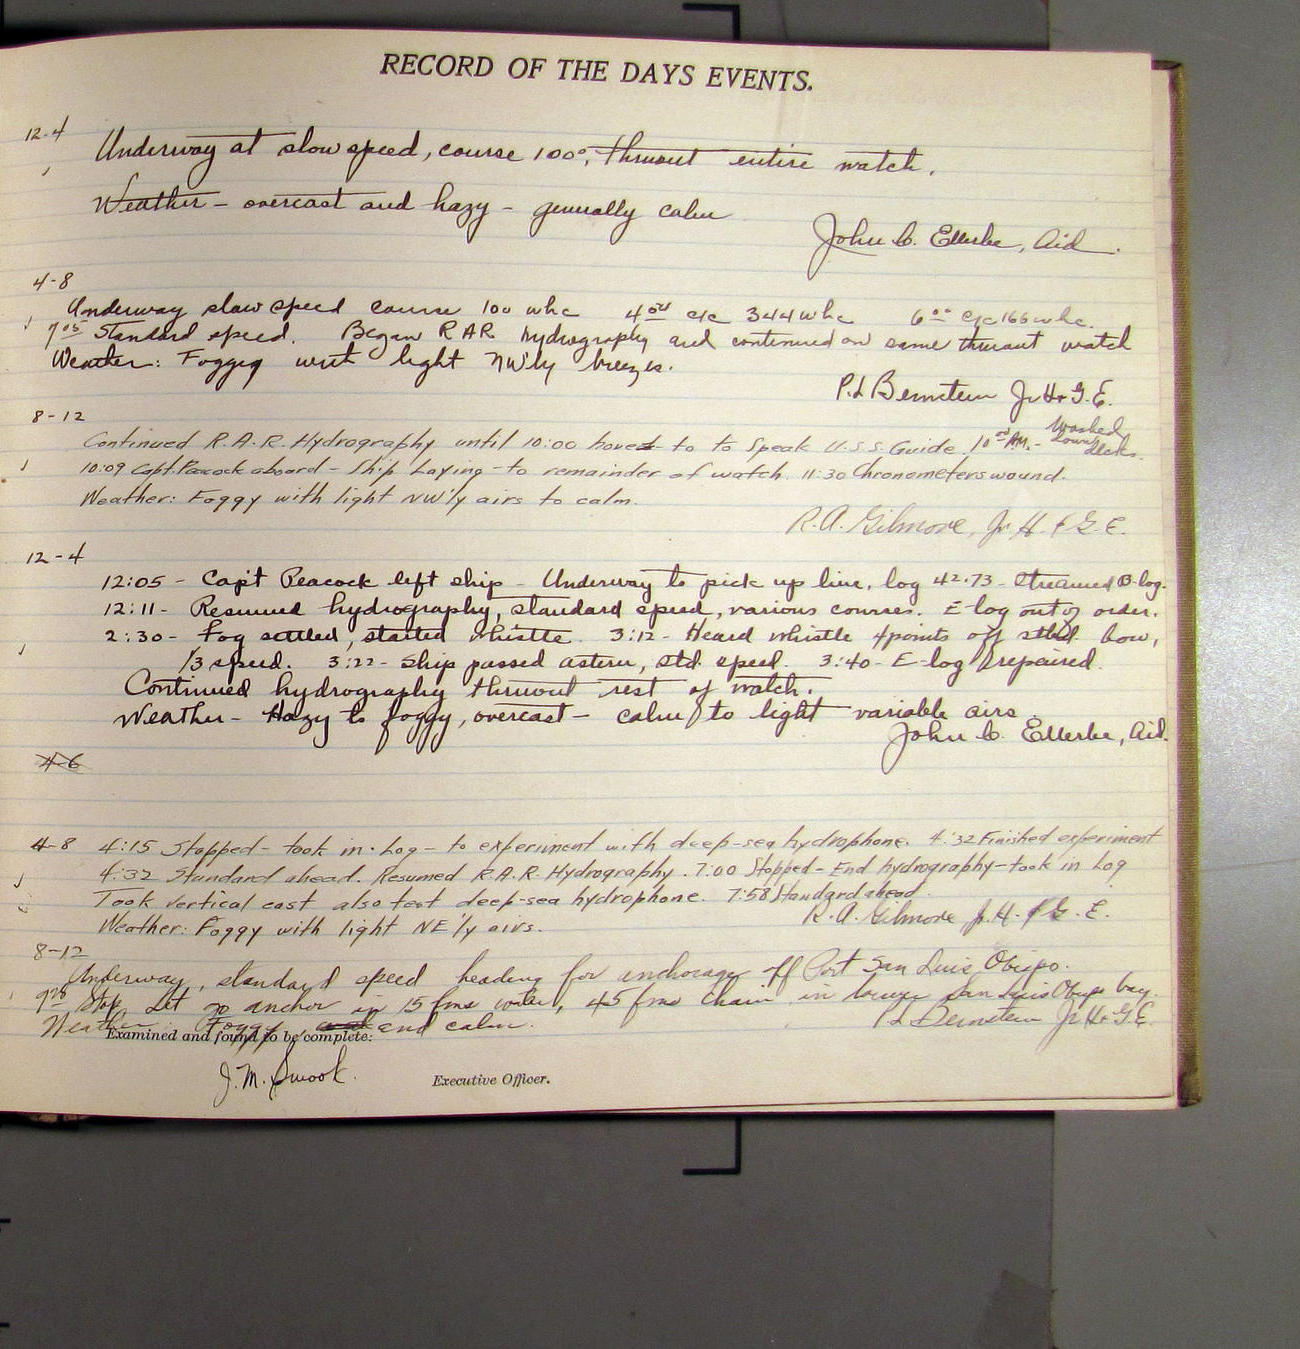 RECORD OF THE DAYS EVENTS.
12-4
Underway at slow speed, course 100°, thruout entire watch.
Weather - overcast and hazy - generally calm
John C. Ellerbe, Aid.
4-8
Underway slow speed course 100 whc 4 c/c 344 whc 6°° c/c 166 whc.
7 05 Standard speed. Began RAR hydrography and continued on same thruout watch
Weather: Foggy with light NW'ly breezes.
P.L Bernstein Jr H & G.E.
8-12
Continued R.A.R. Hydrography until 10:00 hoved to to Speak U.S.S. Guide. 10 AM. - Washed down decks.
10:09 Capt. Peacock aboard - Ship Laying-to remainder of watch. 11:30 Chronometers wound.
Weather: Foggy with light NW'ly airs to calm.
R.A. Gilmore, Jr. H. & G.E.
12-4
12:05 - Capt Peacock left ship - Underway to pick up line, log 42.73 - Streamed B-log.
12:11 - Resumed hydrography, standard speed, various courses. E-log out of order.
2:30 - Fog settled, started whistle. 3:12 - Heard whistle 4 points off stbd. bow,
1/3 speed. 3:22 - Ship passed astern, std. speed. 3:40 - E-log repaired.
Continued hydrography thruout rest of watch.
Weather - Hazy to foggy, overcast - calm to light variable airs.
John C. Ellerbe, Aid.
4-6
4-8 4:15 Stopped - took in Log - to experiment with deep-sea hydrophone. 4:32 Finished experiment
4:32 Standard ahead. Resumed R.A.R. Hydrography. 7:00 Stopped - End hydrography - took in Log
Took vertical cast also test deep-sea hydrophone. 7:58 Standard ahead.
R.A. Gilmore Jr. H. & G.E.
Weather: Foggy with light NE'ly airs.
8-12
Underway, standard speed heading for anchorage off Port San Luis Obispo.
Stop, Let go anchor in 15 fms water, 45 fms chain in San Luis Obispo bay.
Weather Foggy and calm.
P.L Bernstein Jr H & G.E.
Examined and found to be complete:
J.M. Smook
Executive Officer.